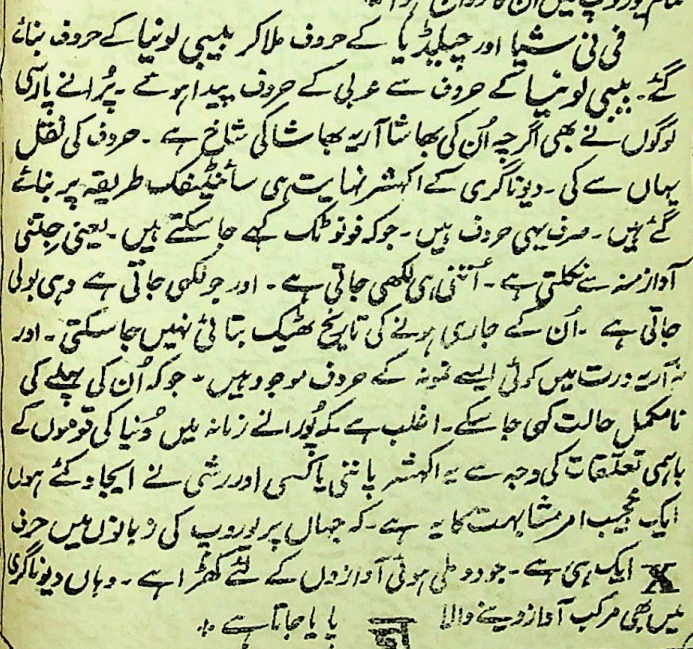 فی نی شیا اور چیلیڈیا کے حروف ملا کر بیبی لونیا کے حروف بنائے
گئے۔ بیبی لونیا کے حروف سے عربی کے حروف پیدا ہوئے۔ پُرانے پارسی
لوگوں نے بھی اگرچہ اُن کی بھاشا آریہ بھاشا کی شاخ ہے۔ حروف کی نقل
یہاں سے کی۔ دیوناگری کے اکہشر نہایت ہی سائنٹیفک طریقہ پر بنائے
گئے ہیں۔ صرف یہی حروف ہیں۔ جو کہ فونوٹک کہے جا سکتے ہیں۔ یعنی جتنی
آواز منہ سے نکلتی ہے۔ اُتنی ہی لکھی جاتی ہے۔ اور جو لکھی جاتی ہے وہی بولی
جاتی ہے۔ اُن کے جاری ہونے کی تاریخ ٹھیک بتائی نہیں جا سکتی۔ اور
نہ آریہ ورت میں کوئی ایسے نمونہ کے حروف موجود ہیں۔ جو کہ اُن کی پہلے کی
نامکمل حالت کہی جا سکے۔ اغلب ہے کہ پُورانے زمانہ میں دُنیا کی قوموں کے
باہمی تعلقات کی وجہ سے یہ اکہشر پاننی یا کسی اور رشی نے ایجاد کئے ہوں
ایک عجیب امر مشابہت کا یہ ہے۔ کہ جہاں پر یوروپ کی زبانوں میں حرف
X ایک ہی ہے۔ جو دو ملی ہوئی آوازوں کے لئے کھڑا ہے۔ وہاں دیوناگری
میں بھی مرکب آواز دینے والا پایا جاتا ہے